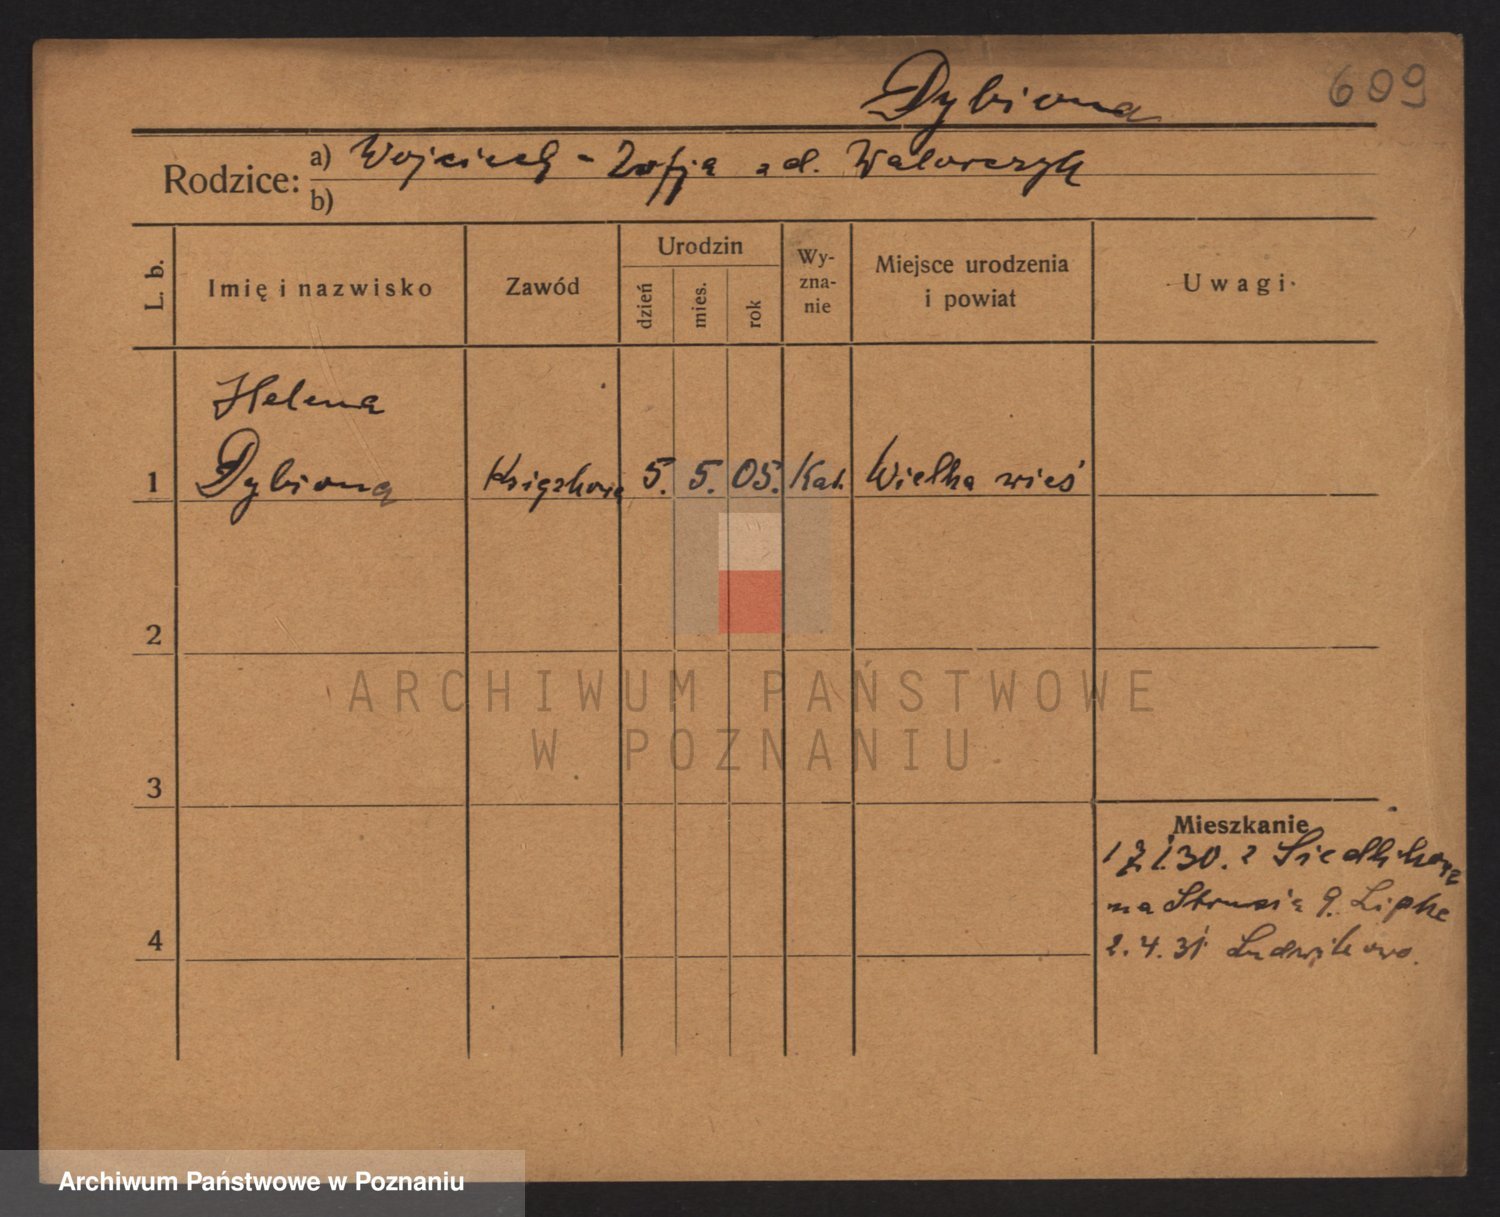 Dybiona
609
Rodzice: a) Wojciech - Zofja zd. Walorczyk
b)
L. b. Imię i nazwisko Zawód Urodzin dzień mies. rok Wy-zna-nie Miejsce urodzenia i powiat Uwagi
Helena
1 Dybiona 5. 5. 05. Kat. Wielka wieś
2
ARCHIWUM PAŃSTWOWE
W POZNANIU
3
Mieszkanie
30. z
na 9. Lipke
4
2.4.31 Ludwikowo.
Archiwum Państwowe w Poznaniu